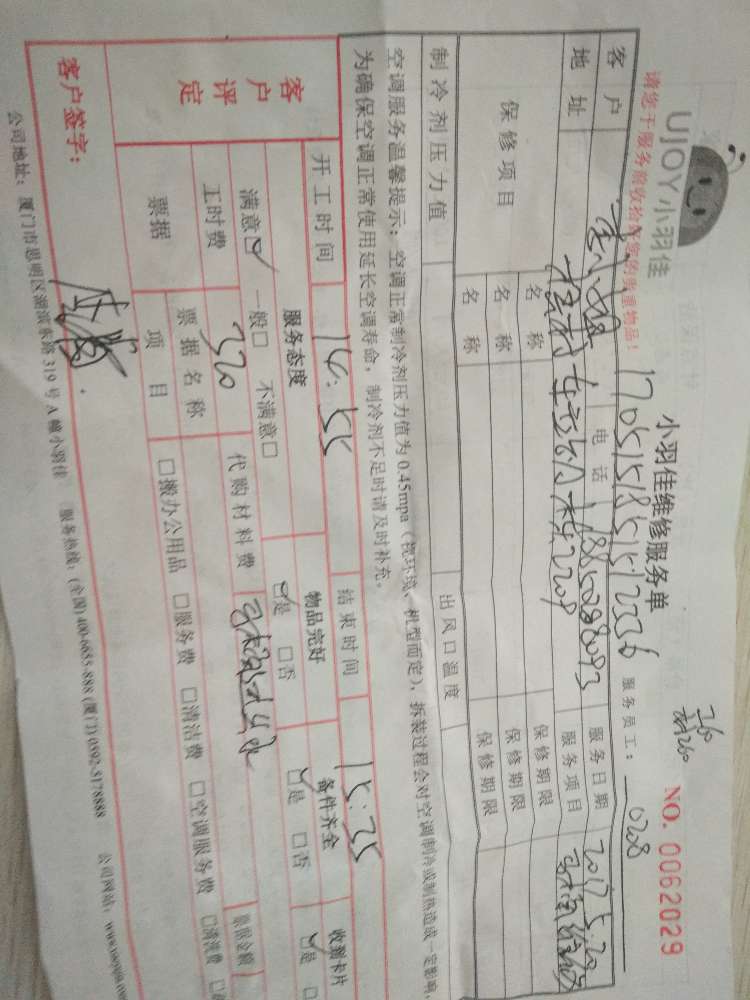 UJOY小羽佳
请您于服务前收拾好您的贵重物品!
小羽佳维修服务单
NO. 0062029
1705151851512336
服务员工: 028
客户
电话
服务日期 2017.5.20
地址
服务项目
保修项目
名称
保修期限
名称
保修期限
名称
保修期限
制冷剂压力值
出风口温度
空调服务温馨提示:空调正常制冷剂压力值为0.45mpa(视环境、机型而定),拆装过程会对空调制冷或制热造成一定影响,
为确保空调正常使用延长空调寿命,制冷剂不足时请及时补充。
客户评定
开工时间 14:55 结束时间 15:25
服务态度 物品完好 备件齐全 收到卡片
满意☑ 一般□ 不满意□ ☑是 □否 ☑是 □否 ☑是
工时费 320 代购材料费
票据 票据名称 票据金额
项目 □搬办公用品 □服务费 □清洁费 □空调服务费 □清洗费
客户签字:
公司地址:厦门市思明区湖滨东路319号A幢小羽佳 服务热线:(全国)400-6655-888 (厦门)0592-5178888 公司网站: